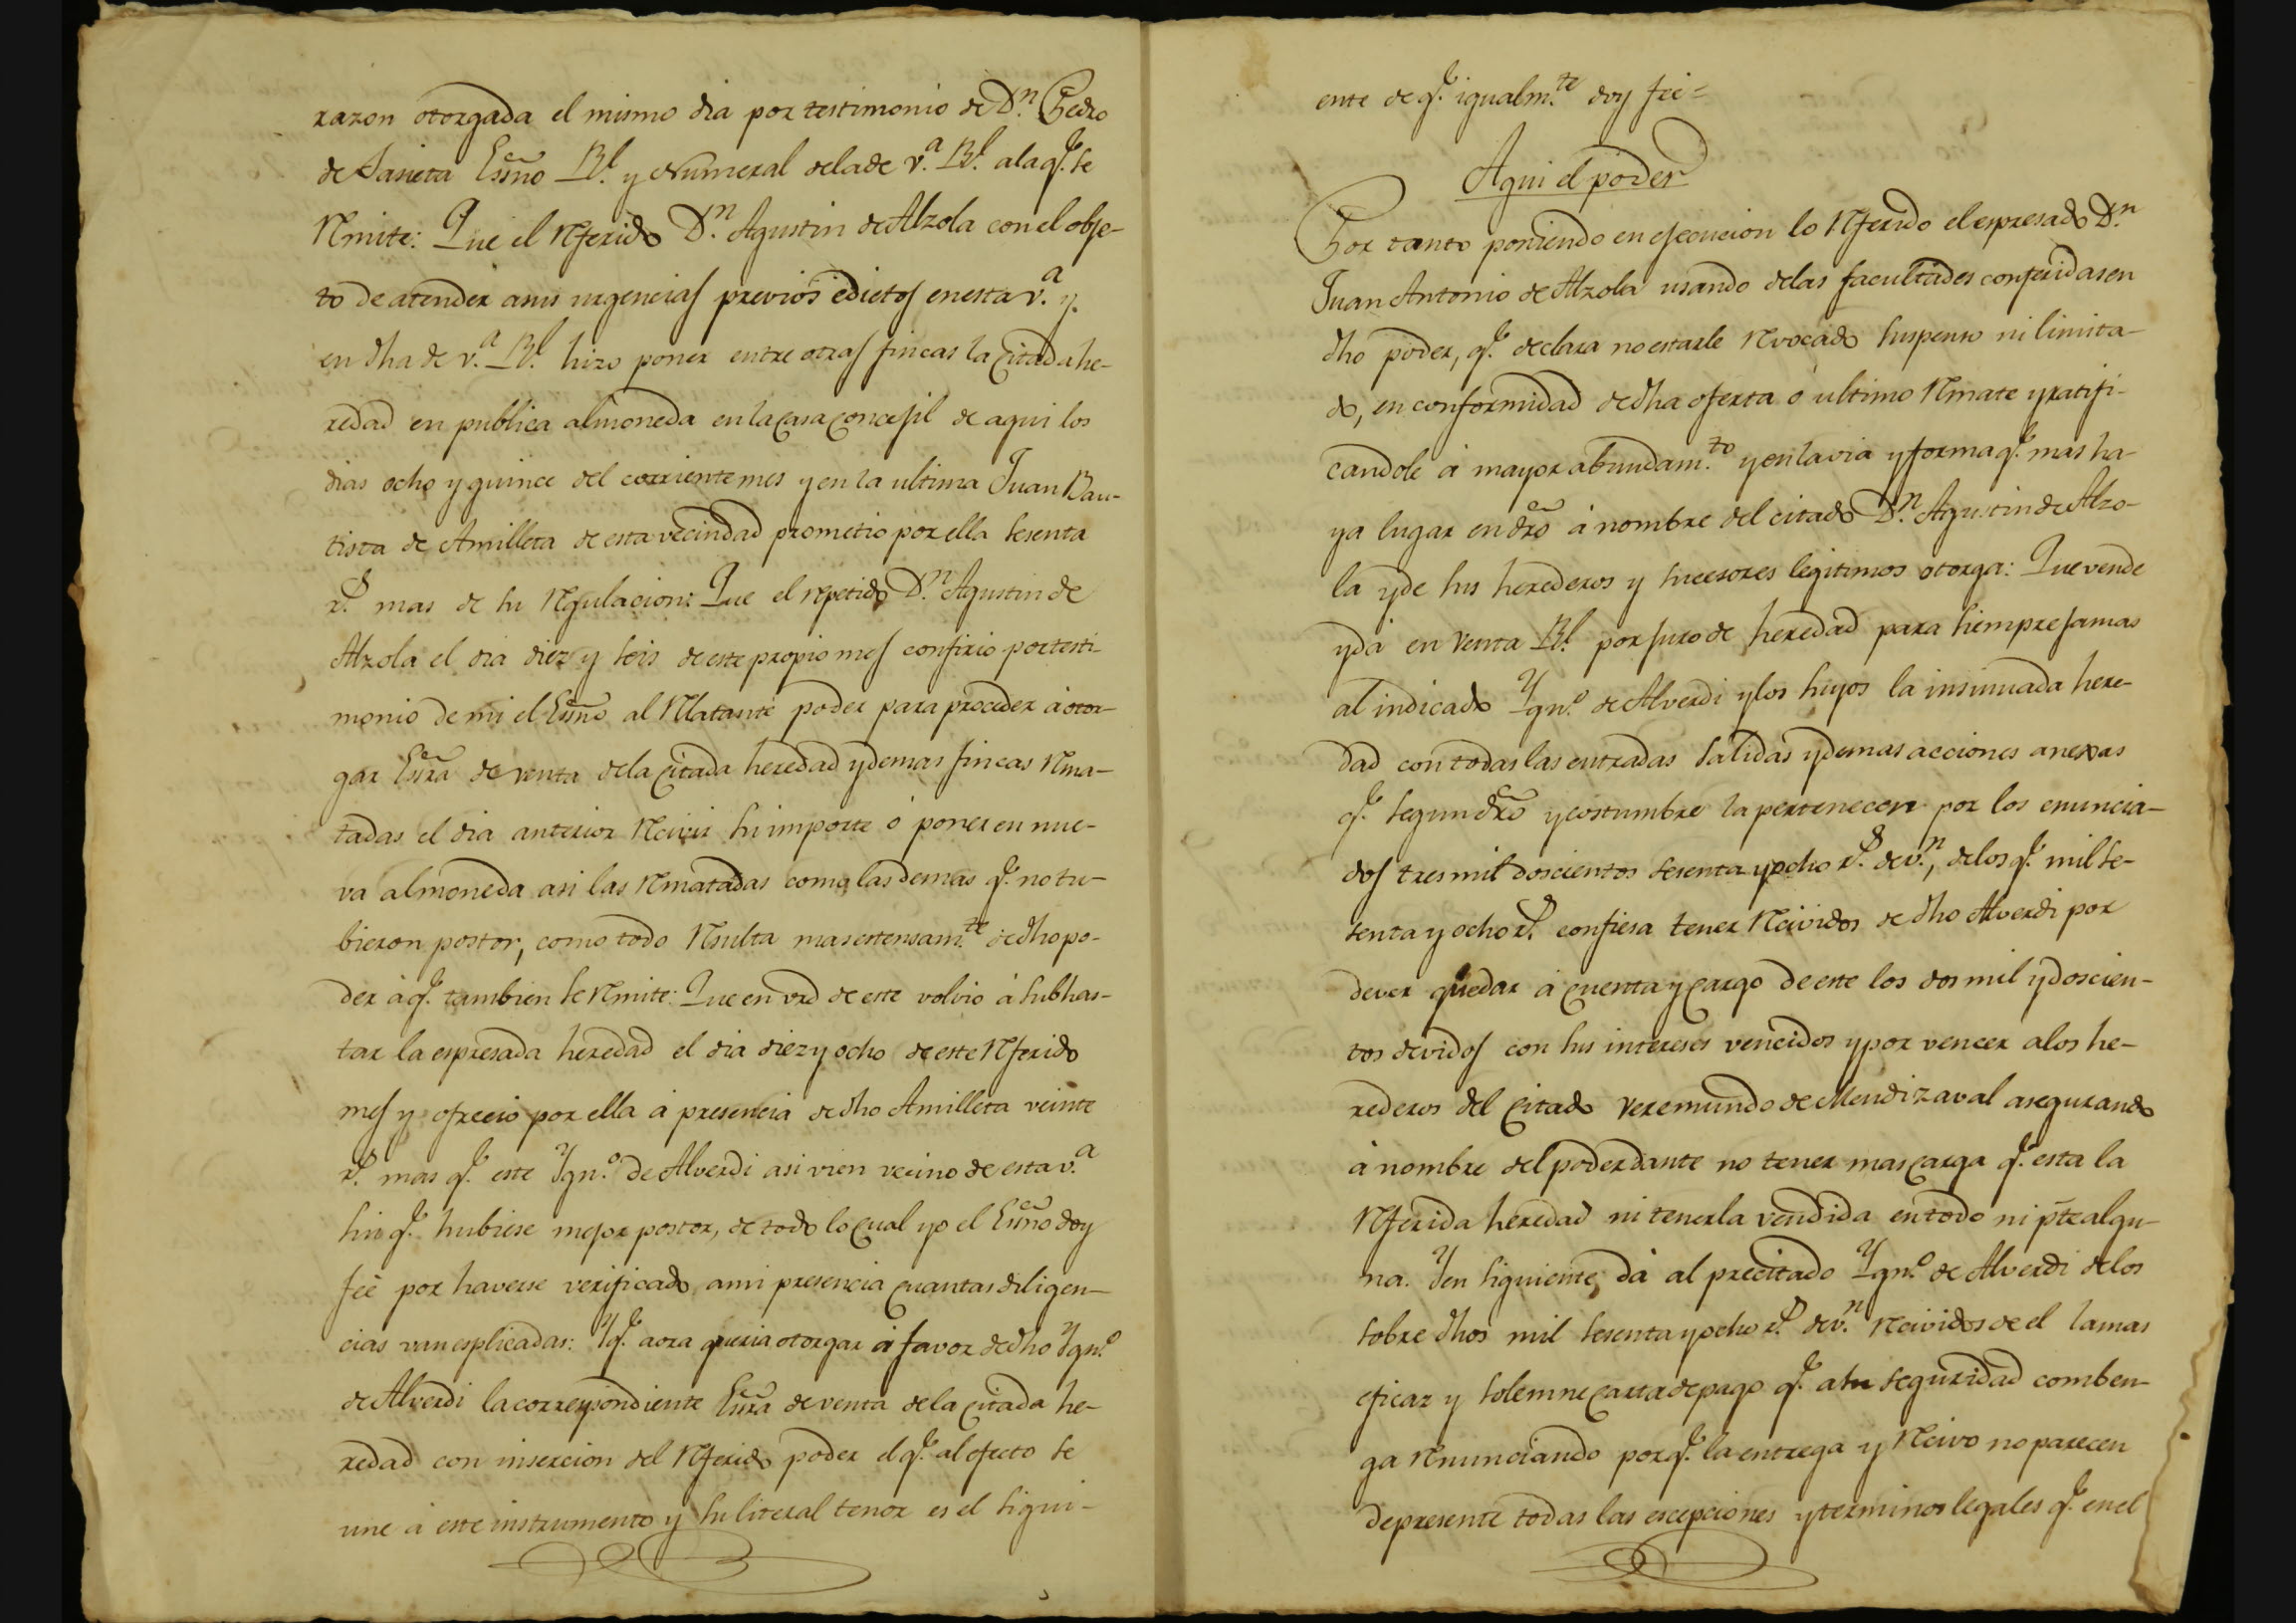 razon otorgada el mismo dia por testimonio de Dn. Pedro
de Essno Rl. y Numeral dela de v.a Rl. ala q.e se
Rmite: Que el Rferido Dn. Agustin de Alzola con el obje-
to de atender asus urgencias previos edictos en esta v.a y
en dha de v.a Rl. hizo poner entre otras fincas la citada he-
redad en publica almoneda en la casa concejil de aqui los
dias ocho y quince del corriente mes y en la ultima Juan Bau-
tista de Amilleta de esta vecindad prometio por ella sesenta
rs. mas de su Rgulacion: Que el repetido Dn. Agustin de
Alzola el dia diez y seis de este propio mes confirio por testi-
monio de mi el Essno al Rlatante poder para proceder à otor-
gar Essra de venta dela citada heredad y demas fincas Rma-
tadas el dia anterior Rcivir su importe ó poner en nue-
va almoneda asi las Rmatadas como las demas q.e no tu-
bieron postor, como todo Rsulta mas estensam.te de dho po-
der à q.e tambien se Rmite: Que en vrd de este volvio à subhas-
tar la espresada heredad el dia diez y ocho de este Rferido
mes y ofrecio por ella à presencia de dho Amilleta veinte
rs. mas q.e este Ygn.o de Alverdi asi vien vecino de esta v.a
sin q.e hubiese mejor postor, de todo lo cual yo el Essno doy
feè por haverse verificado ami presencia cuantas diligen-
cias van esplicadas: Y q.e aora queria otorgar à favor de dho Ygn.o
de Alverdi la correspondiente Essra de venta de la citada he-
redad con insercion del Rferido poder el q.e al efecto se
une à este instrumento y su literal tenor es el sigui-
ente de q.e igualm.te doy feè=
Aqui el poder
Por tanto poniendo en ejecucion lo Rferido el espresado Dn.
Juan Antonio de Alzola usando delas facultades conferidas en
dho poder, q.e declara no estarle Rvocado suspenso ni limita-
do, en conformidad de dha oferta ó ultimo Rmate y ratifi-
candole à mayor abundam.to y en la via y forma q.e mas ha-
ya lugar en dro à nombre del citado Dn. Agustin de Alzo-
la y de sus herederos y sucesores legitimos otorga: Que vende
y dà en venta Rl. por juro de heredad para siempre jamas
al indicado Ygn.o de Alverdi y los suyos la insinuada here-
dad con todas las entradas salidas y demas acciones anexas
q.e segun dro y costumbre la pertenecen por los enuncia-
dos tres mil doscientos sesenta y ocho rs. de v.n, delos q.e mil se-
senta y ocho rs. confiesa tener Rcividos de dho Alverdi por
dever quedar à cuenta y cargo de este los dos mil y doscien-
tos devidos con sus intereses vencidos y por vencer alos he-
rederos del citado Veremundo de Mendizaval asegurando
à nombre del poderdante no tener mas carga q.e esta la
Rferida heredad ni tenerla vendida en todo ni pte algu-
na. Y en siguiente, dà al precitado Ygn.o de Alverdi delos
sobre dhos mil sesenta y ocho rs. de v.n Rcividos de el la mas
eficaz y solemne carta de pago q.e a su seguridad comben-
ga Rnunciando por q.e la entrega y Rcivo no parecen
de presente todas las escepciones y terminos legales q.e en el